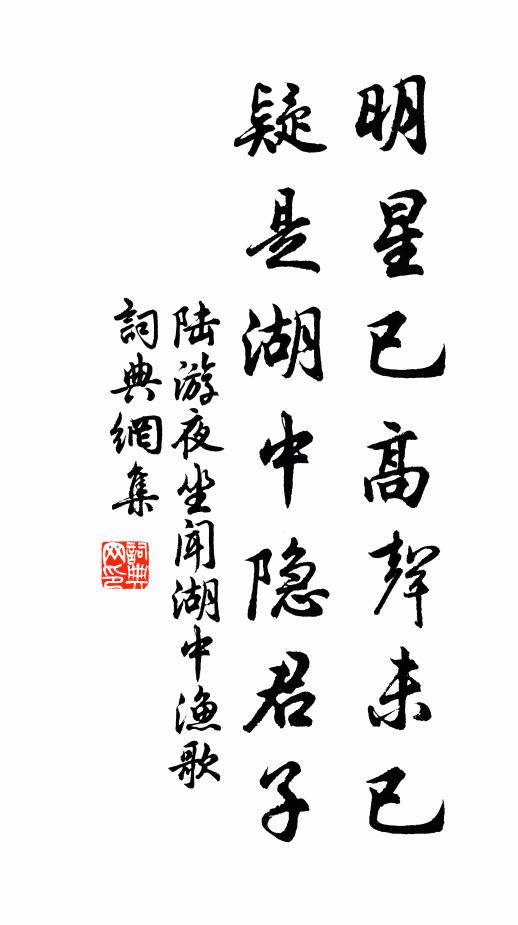 明星已高聲未已
疑是湖中隐君子
陆游夜坐闻湖中漁歌
詞典網集
詞典网印